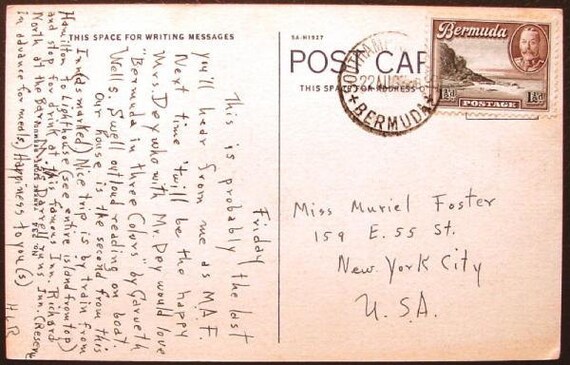 THIS SPACE FOR WRITING MESSAGES
Friday
This is probably the last
you'll hear from me as M.A.F.
Next time 'twill be the happy
Mrs. Dey who with Mr. Dey would love
"Bermuda in three Colors" by Carveth
Wells. Swell outloud reading on boat.
Our house is the second from this
Inn (as marked) Nice trip is by train from
Hamilton to Lighthouse (see entire island from top)
and stop for drink at this famous Inn. Richard
North at the Barn runs Inn. (Reserve
in advance for meals) Happiness to you (s)
H L R
5A-H1927
POST CAR
THIS SPACE FOR ADDRESS O
22 AUG
BERMUDA
Bermuda
1½d POSTAGE 1½d
Miss Muriel Foster
159 E. 55 St.
New York City
U.S.A.